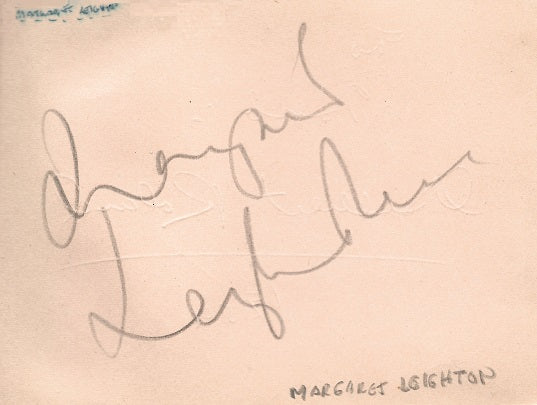 MARGARET LEIGHTON
Margaret
Leighton
MARGARET LEIGHTON